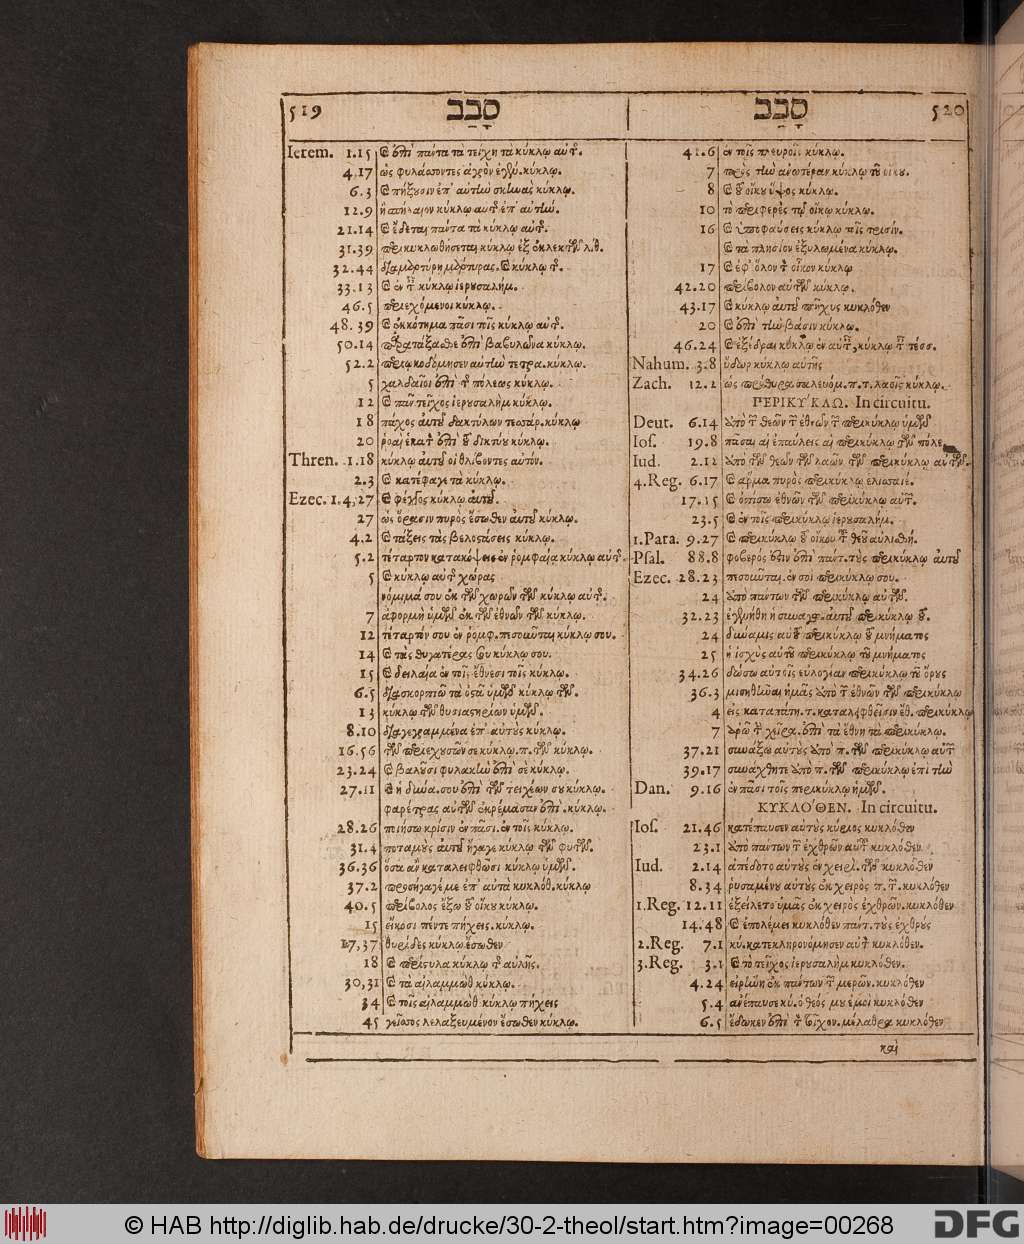 519 סָבַב
סָבַב 520
Ierem. 1.15 καὶ ἐπὶ πάντα τὰ τείχη τὰ κύκλῳ αὐτῆς.
4,17 ὡς φυλάσσοντες ἀγρὸν ἐγένοντο κύκλῳ.
6.3 καὶ πήξουσιν ἐπ' αὐτὴν σκηνὰς κύκλῳ.
12.9 ἢ σπήλαιον κύκλῳ αὐτῆς ἐπ' αὐτήν.
21.14 καὶ ἔδεται πάντα τὰ κύκλῳ αὐτῆς.
31.39 περικυκλωθήσεται κύκλῳ ἐξ ἐκλεκτῶν λίθ.
32.44 καὶ κύκλῳ
33.13 καὶ ἐν τοῖς κύκλῳ ἱερουσαλήμ.
46.5 περιεχόμενοι κύκλῳ.
48.39 καὶ ἐγκότημα πᾶσι τοῖς κύκλῳ αὐτῆς.
50.14 παρατάξασθε ἐπὶ βαβυλῶνα κύκλῳ.
52.2 κύκλῳ.
5 χαλδαῖοι ἐπὶ τῆς πόλεως κύκλῳ.
12 καὶ πᾶν τεῖχος ἱερουσαλὴμ κύκλῳ.
18 πάχος αὐτοῦ δακτύλων τεσσάρ. κύκλῳ
20 ῥοαὶ ἑκατὸν ἐπὶ τοῦ δικτύου κύκλῳ.
Thren. 1.18 κύκλῳ αὐτοῦ οἱ θλίβοντες αὐτόν.
2.3 καὶ κατέφαγε τὰ κύκλῳ.
Ezec. 1.4,27 καὶ φέγγος κύκλῳ αὐτοῦ.
27 ὡς ὅρασιν πυρὸς ἔσωθεν αὐτοῦ κύκλῳ.
4.2 καὶ τάξεις τὰς βελοστάσεις κύκλῳ.
5.2 τέταρτον κατακόψεις ἐν ῥομφαίᾳ κύκλῳ αὐτῆς.
5 καὶ κύκλῳ αὐτῆς χώρας
νόμιμά σου ἐκ τῶν χωρῶν τῶν κύκλῳ αὐτῆς.
7 ἀφορμὴ ὑμῶν ἐκ τῶν ἐθνῶν τῶν κύκλῳ.
12 τέταρτόν σου ἐν ῥομφ. πεσοῦνται κύκλῳ σου.
14 καὶ τὰς θυγατέρας σου κύκλῳ σου.
15 καὶ δειλαία ἐν τοῖς ἔθνεσι τοῖς κύκλῳ.
6.5 διασκορπιῶ τὰ ὀστᾶ ὑμῶν κύκλῳ τῶν.
13 κύκλῳ τῶν θυσιαστηρίων ὑμῶν.
8.10 διαγεγραμμένα ἐπ' αὐτοὺς κύκλῳ.
16.56 τῶν περιεχουσῶν σε κύκλῳ. π. τῶν κύκλῳ.
23.24 καὶ βαλοῦσι φυλακὴν ἐπὶ σὲ κύκλῳ.
27.11 καὶ ἡ δύνα. σου ἐπὶ τῶν τειχέων σου κύκλῳ.
φαρέτρας αὐτῶν ἐκρέμασαν ἐπὶ. κύκλῳ.
28.26 ποιήσω κρίσιν ἐν πᾶσι. ἐν τοῖς κύκλῳ.
31.4 ποταμοὺς αὐτοῦ ἤγαγε κύκλῳ τῶν φυτῶν.
36.36 ὅσα ἂν καταλειφθῶσι κύκλῳ ὑμῶν.
37.2 κύκλῳ
40.5 περίβολος ἔξω τοῦ οἴκου κύκλῳ.
15 εἴκοσι πέντε πήχεις. κύκλῳ.
17,37 θυρίδες κύκλῳ ἔσωθεν
18 καὶ περίστυλα κύκλῳ τῆς αὐλῆς.
30,31 καὶ τὰ αἰλαμμὼθ κύκλῳ.
34 καὶ τοῖς αἰλαμμὼθ κύκλῳ πήχεις
45 γεῖσος λελαξευμένον ἔσωθεν κύκλῳ.
41.6 ἐν τοῖς πλευροῖς κύκλῳ.
7 πρὸς τὴν ἀνωτέραν κύκλῳ τοῦ οἴκου.
8 καὶ τοῦ οἴκου ὕψος κύκλῳ.
10 τὸ περιφερὲς τῷ οἴκῳ κύκλῳ.
16 καὶ ὑποφαύσεις κύκλῳ τοῖς τρισίν.
καὶ τὰ πλησίον ἐξυλωμένα κύκλῳ.
17 καὶ ἐφ' ὅλον τὸν οἶκον κύκλῳ
42.20 περίβολον αὐτῶν κύκλῳ.
43.17 καὶ κύκλῳ αὐτοῦ πῆχυς κυκλόθεν
20 καὶ ἐπὶ τὴν βάσιν κύκλῳ.
46.24 καὶ ἐξέδραι κύκλῳ ἐν αὐτοῖς, κύκλῳ τοῖς τέσσ.
Nahum. 3.8 ὕδωρ κύκλῳ αὐτῆς
Zach. 12.2 ὡς πρόθυρα σαλευόμ. π. τ. λαοῖς κύκλῳ.
ΠΕΡΙΚΥ´ΚΛΩ. In circuitu.
Deut. 6.14 ἀπὸ τῶν θεῶν τῶν ἐθνῶν τῶν περικύκλῳ ὑμῶν
Ios. 19.8 πᾶσαι αἱ ἐπαύλεις αἱ περικύκλῳ τῶν πόλε
Iud. 2.12 ἀπὸ τῶν θεῶν τῶν λαῶν τῶν περικύκλῳ αὐτῶν.
4.Reg. 6.17 καὶ ἅρμα πυρὸς περικύκλῳ ἐλισσαιέ.
17.15 καὶ ὀπίσω ἐθνῶν τῶν περικύκλῳ αὐτῶν.
23.5 καὶ ἐν τοῖς περικύκλῳ ἱερουσαλήμ.
1.Para. 9.27 καὶ περικύκλῳ τοῦ οἴκου τοῦ θεοῦ αὐλισθή.
Psal. 88.8 φοβερός ἐστιν ἐπὶ πάντ. τοὺς περικύκλῳ αὐτοῦ
Ezec. 28.23 πεσοῦνται ἐν σοὶ περικύκλῳ σου.
24 ἀπὸ πάντων τῶν περικύκλῳ αὐτῶν.
32.23 ἐγενήθη ἡ συναγ. αὐτοῦ περικύκλῳ τοῦ.
24 δύναμις αὐτοῦ περικύκλῳ τοῦ μνήματος
25 ἡ ἰσχὺς αὐτοῦ περικύκλῳ τοῦ μνήματος
34.26 δώσω αὐτοῖς εὐλογίαν περικύκλῳ τοῦ ὄρους
36.3 μισηθῆναι ἡμᾶς ἀπὸ τῶν ἐθνῶν τῶν περικύκλῳ
4 εἰς καταπάτη. τ. καταλειφθεῖσιν ἔθ. περικύκλῳ
7 ἀρῶ τὴν χεῖρα. ἐπὶ τὰ ἔθνη τὰ περικύκλῳ.
37.21 συνάξω αὐτοὺς ἀπὸ π. τῶν περικύκλῳ αὐτῶν
39.17 συνάχθητε ἀπὸ π. τῶν περικύκλῳ ἐπὶ τὴν
Dan. 9.16 ἐν πᾶσι τοῖς περικύκλῳ ἡμῶν.
ΚΥΚΛΟ´ΘΕΝ. In circuitu.
Ios. 21.46 κατέπαυσεν αὐτοὺς κύριος κυκλόθεν
23.1 ἀπὸ πάντων τῶν ἐχθρῶν αὐτῶν κυκλόθεν.
Iud. 2.14 ἀπέδοτο αὐτοὺς ἐν χειρὶ. τῶν κυκλόθεν
8.34 ῥυσαμένου αὐτοὺς ἐκ χειρὸς π. τῶν. κυκλόθεν
1.Reg. 12.11 ἐξείλετο ὑμᾶς ἐκ χειρὸς ἐχθρῶν. κυκλόθεν
14.48 καὶ ἐπολέμει κυκλόθεν πάντ. τοὺς ἐχθρούς
2.Reg. 7.1 κύ. κατεκληρονόμησεν αὐτὸν κυκλόθεν.
3.Reg. 3.1 καὶ τὸ τεῖχος ἱερουσαλὴμ κυκλόθεν.
4.24 εἰρήνη ἐκ πάντων τῶν μερῶν. κυκλόθεν
5.4 ἀνέπαυσε κύ. ὁ θεός μου ἐμοὶ κυκλόθεν
6.5 ἔδωκεν ἐπὶ τὸν τοῖχον. μέλαθρα κυκλόθεν
καὶ
© HAB http://diglib.hab.de/drucke/30-2-theol/start.htm?image=00268
DFG